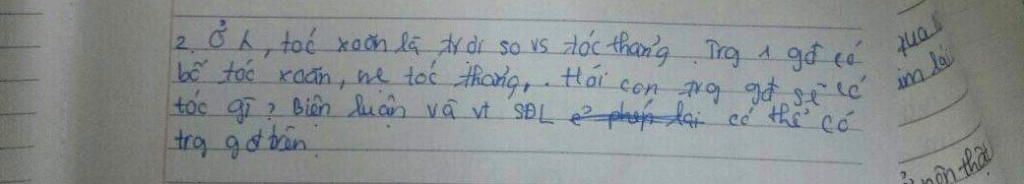 2. Ở λ, tóc xoăn là trội so vs tóc thẳng. Trg 1 gđ có
bố tóc xoăn, mẹ tóc thẳng,. Hỏi con trg gđ sẽ có
tóc gì? Biện luận và vt SĐL có thể có
trg gđ trên.